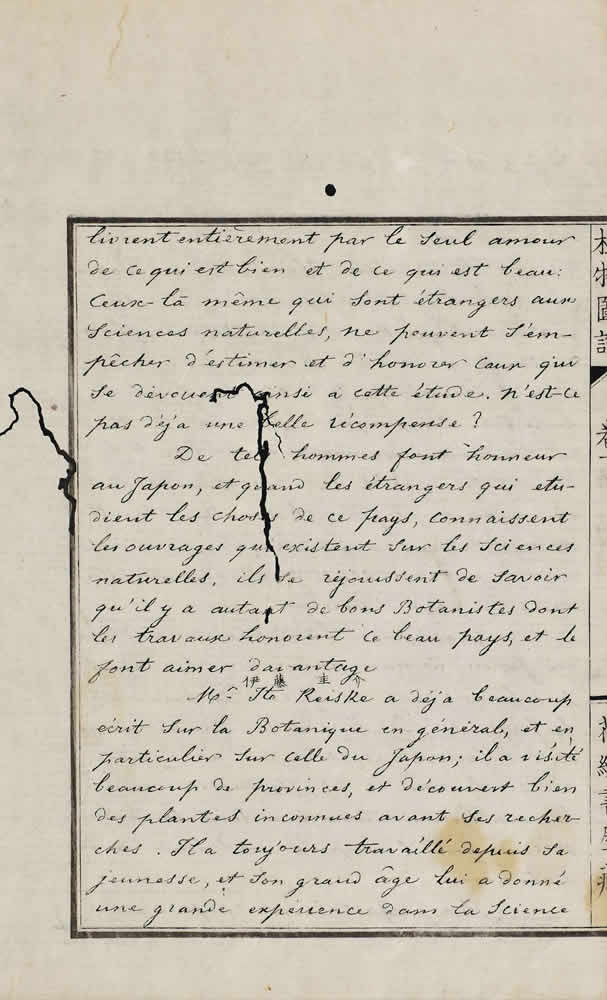 livrent entièrement par le seul amour
de ce qui est bien et de ce qui est beau:
Ceux-là même qui sont étrangers aux
Sciences naturelles, ne peuvent s'em-
pêcher d'estimer et d'honorer ceux qui
se dévouent ainsi à cette étude. N'est-ce
pas déjà une belle récompense ?
De tels hommes font honneur
au Japon, et quand les étrangers qui etu-
dient les choses de ce pays, connaissent
les ouvrages qui existent sur les Sciences
naturelles, ils se réjouissent de savoir
qu'il y a autant de bons Botanistes dont
les travaux honorent ce beau pays, et le
font aimer davantage
伊藤圭介
Mr. Ito Keiske a déjà beaucoup
écrit sur la Botanique en général, et en
particulier sur celle du Japon; il a visité
beaucoup de provinces, et découvert bien
des plantes inconnues avant ses recher-
ches. Il a toujours travaillé depuis sa
jeunesse, et son grand âge lui a donné
une grande expérience dans la Science